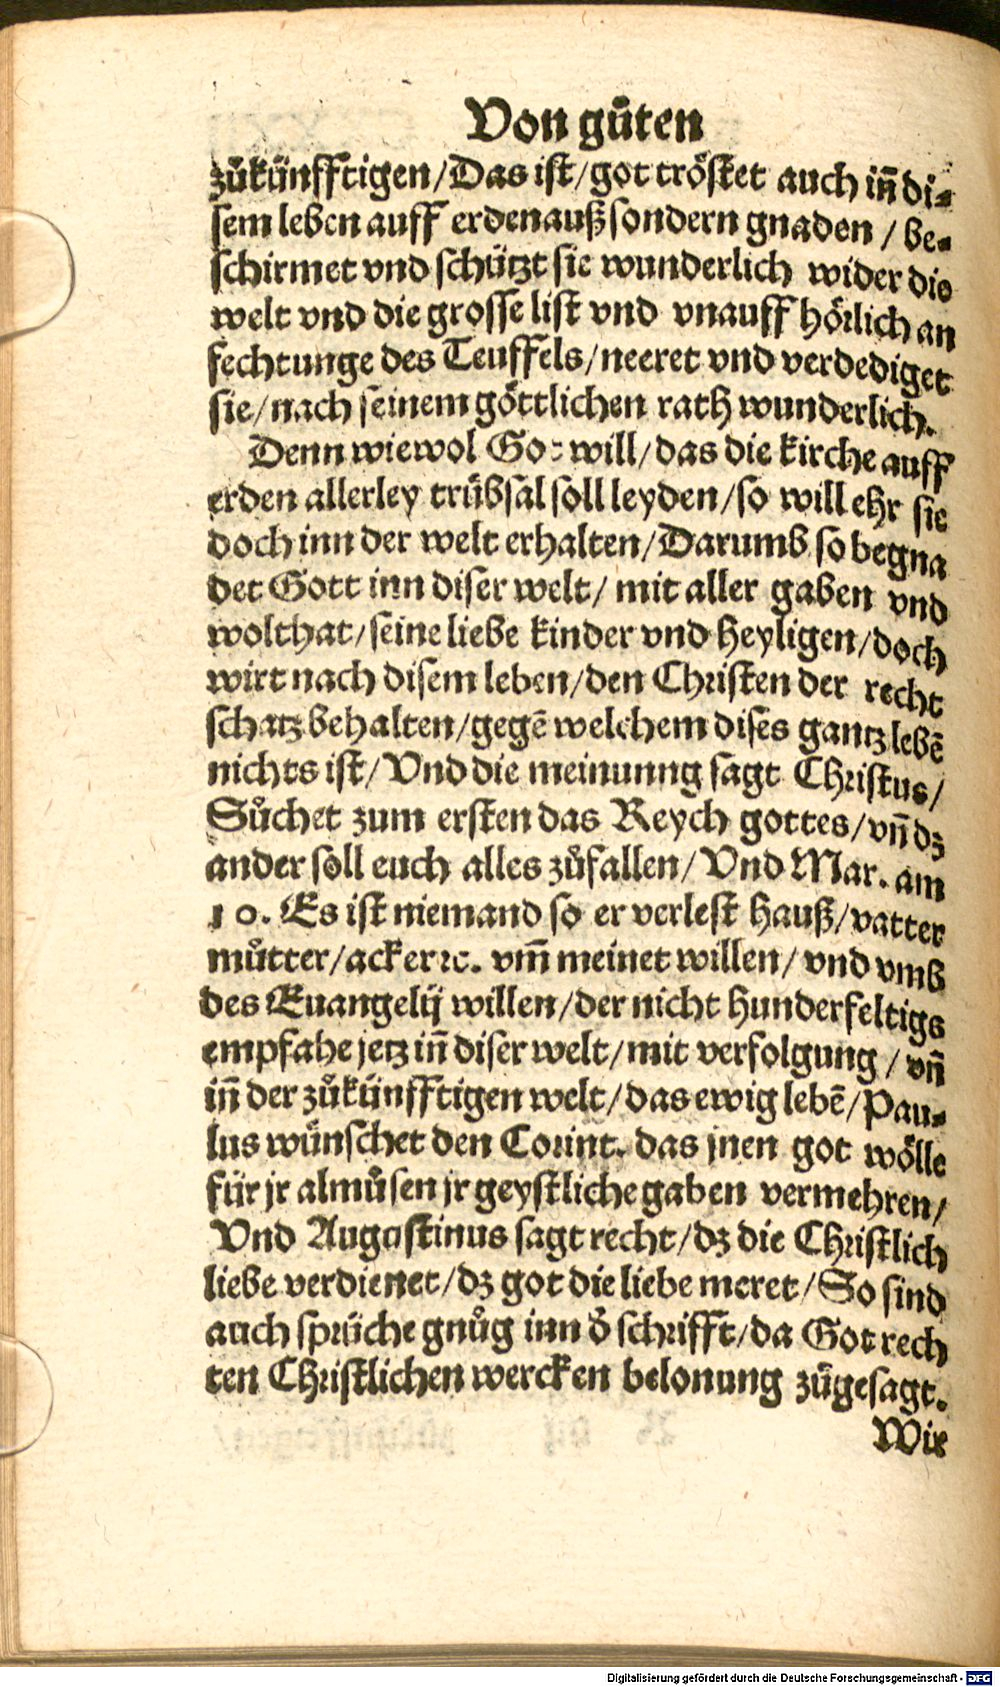 Von guͦten
zuͦkünfftigen/Das ist/got tröstet auch iñ di⸗
sem leben auff erden auß sondern gnaden / be⸗
schirmet vnd schützt sie wunderlich wider die
welt vnd die grosse list vnd vnauff hörlich an
fechtunge des Teuffels/neeret vnd verdediget
sie/nach seinem göttlichen rath wunderlich.
Denn wiewol Got will/das die kirche auff
erden allerley trübsal soll leyden/so will ehr sie
doch inn der welt erhalten/Darumb so begna
det Gott inn diser welt/ mit aller gaben vnd
wolthat/seine liebe kinder vnd heyligen/doch
wirt nach disem leben/den Christen der recht
schatz behalten/gegē welchem dises gantz lebē
nichts ist/Vnd die meinunng sagt Christus/
Suͦchet zum ersten das Reych gottes/vñ dz
ander soll euch alles zuͦfallen/Vnd Mar. am
10. Es ist niemand so er verlest hauß/vatter
muͦtter/acker ꝛc. vm̃ meinet willen/vnd vmb
des Euangelij willen/der nicht hunderfeltigs
empfahe jetz iñ diser welt/mit verfolgung /vñ
iñ der zuͦkünfftigen welt/das ewig lebē/Pau⸗
lus wünschet den Corint. das jnen got wölle
für jr almuͦsen jr geystliche gaben vermehren/
Vnd Augustinus sagt recht/dz die Christlich
liebe verdienet/dz got die liebe meret/So sind
auch sprüche gnuͦg inn d̕ schrifft/da Got rech
ten Christlichen wercken belonung zuͦgesagt.
Wir
Digitalisierung gefördert durch die Deutsche Forschungsgemeinschaft - DFG